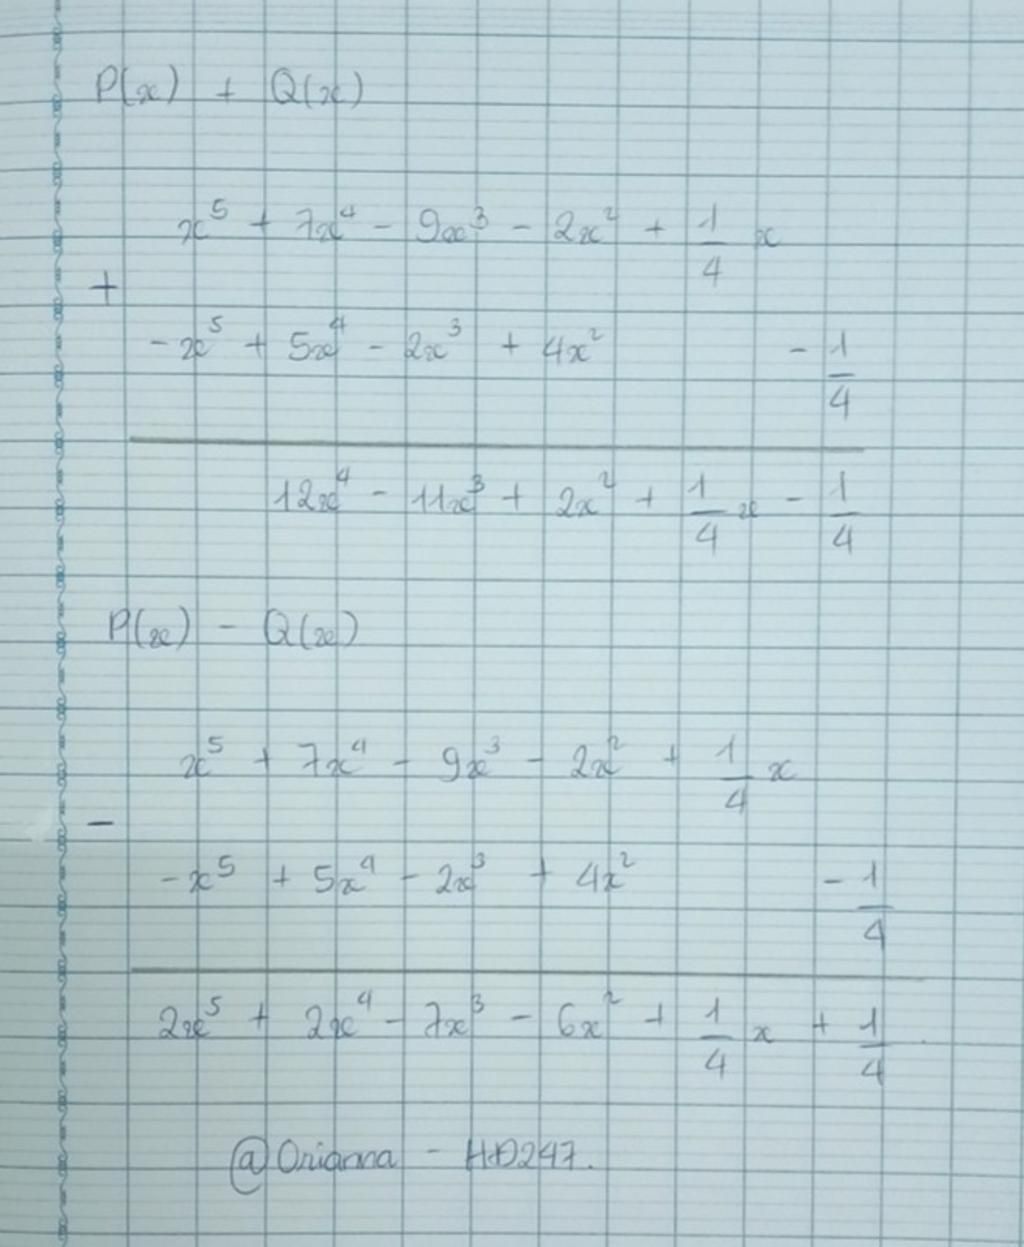 P(x) + Q(x)
x⁵ + 7x⁴ - 9x³ - 2x² + 1/4 x
+
- x⁵ + 5x⁴ - 2x³ + 4x² - 1/4
12x⁴ - 11x³ + 2x² + 1/4 x - 1/4
P(x) - Q(x)
x⁵ + 7x⁴ - 9x³ - 2x² + 1/4 x
-
- x⁵ + 5x⁴ - 2x³ + 4x² - 1/4
2x⁵ + 2x⁴ - 7x³ - 6x² + 1/4 x + 1/4
@Orianna - HD247.